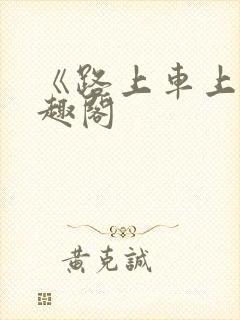 《路上車上
趣閣
黃克誠